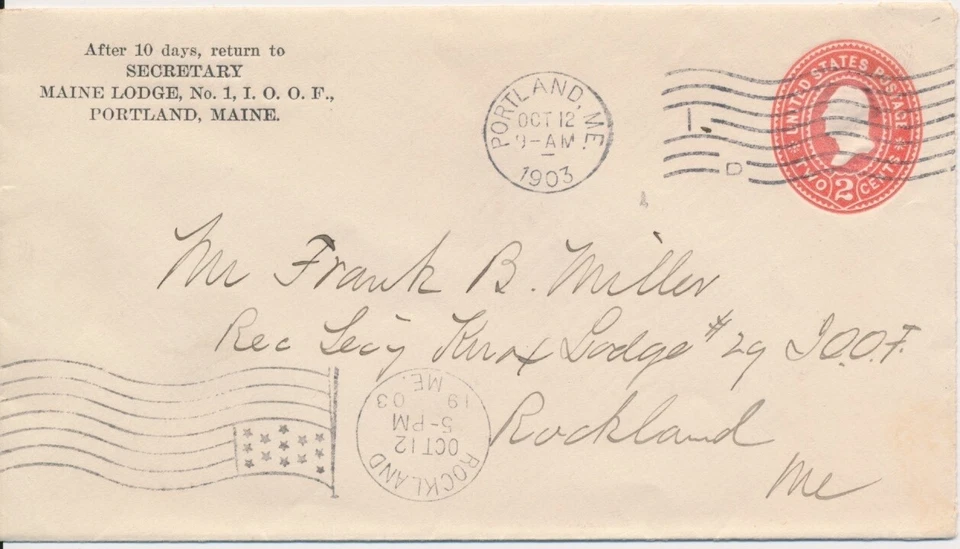 After 10 days, return to
SECRETARY
MAINE LODGE, No. 1, I. O. O. F.,
PORTLAND, MAINE.
PORTLAND, ME.
OCT 12
9-AM
1903
1.
D
UNITED STATES POSTAGE
TWO 2 CENTS
Mr Frank B. Miller
Rec Secy Knox Lodge #29 I.O.O.F.
Rockland
Me
ROCKLAND
OCT 12
5-PM
19 03
ME.